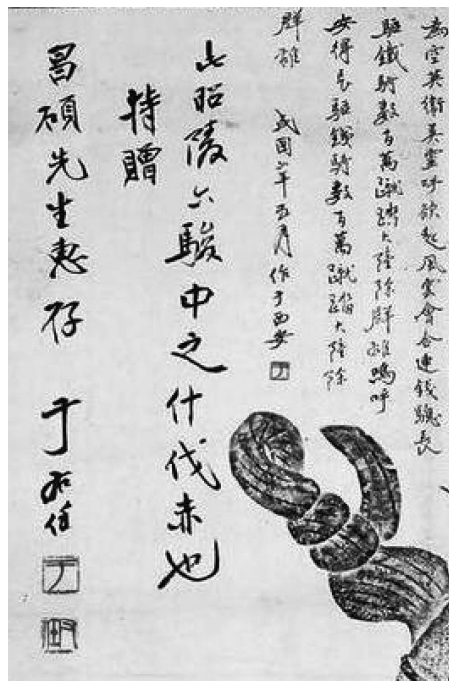 為空英衛英靈呼欲起風雲會合連錢驄長
驅鐵騎數百萬蹴踏大陸除群雄嗚呼
安得長驅鐵騎數百萬蹴踏大陸除
群雄 民國年五月作于西安
此昭陵六駿中之什伐赤也
特贈
昌碩先生惠存 于右任